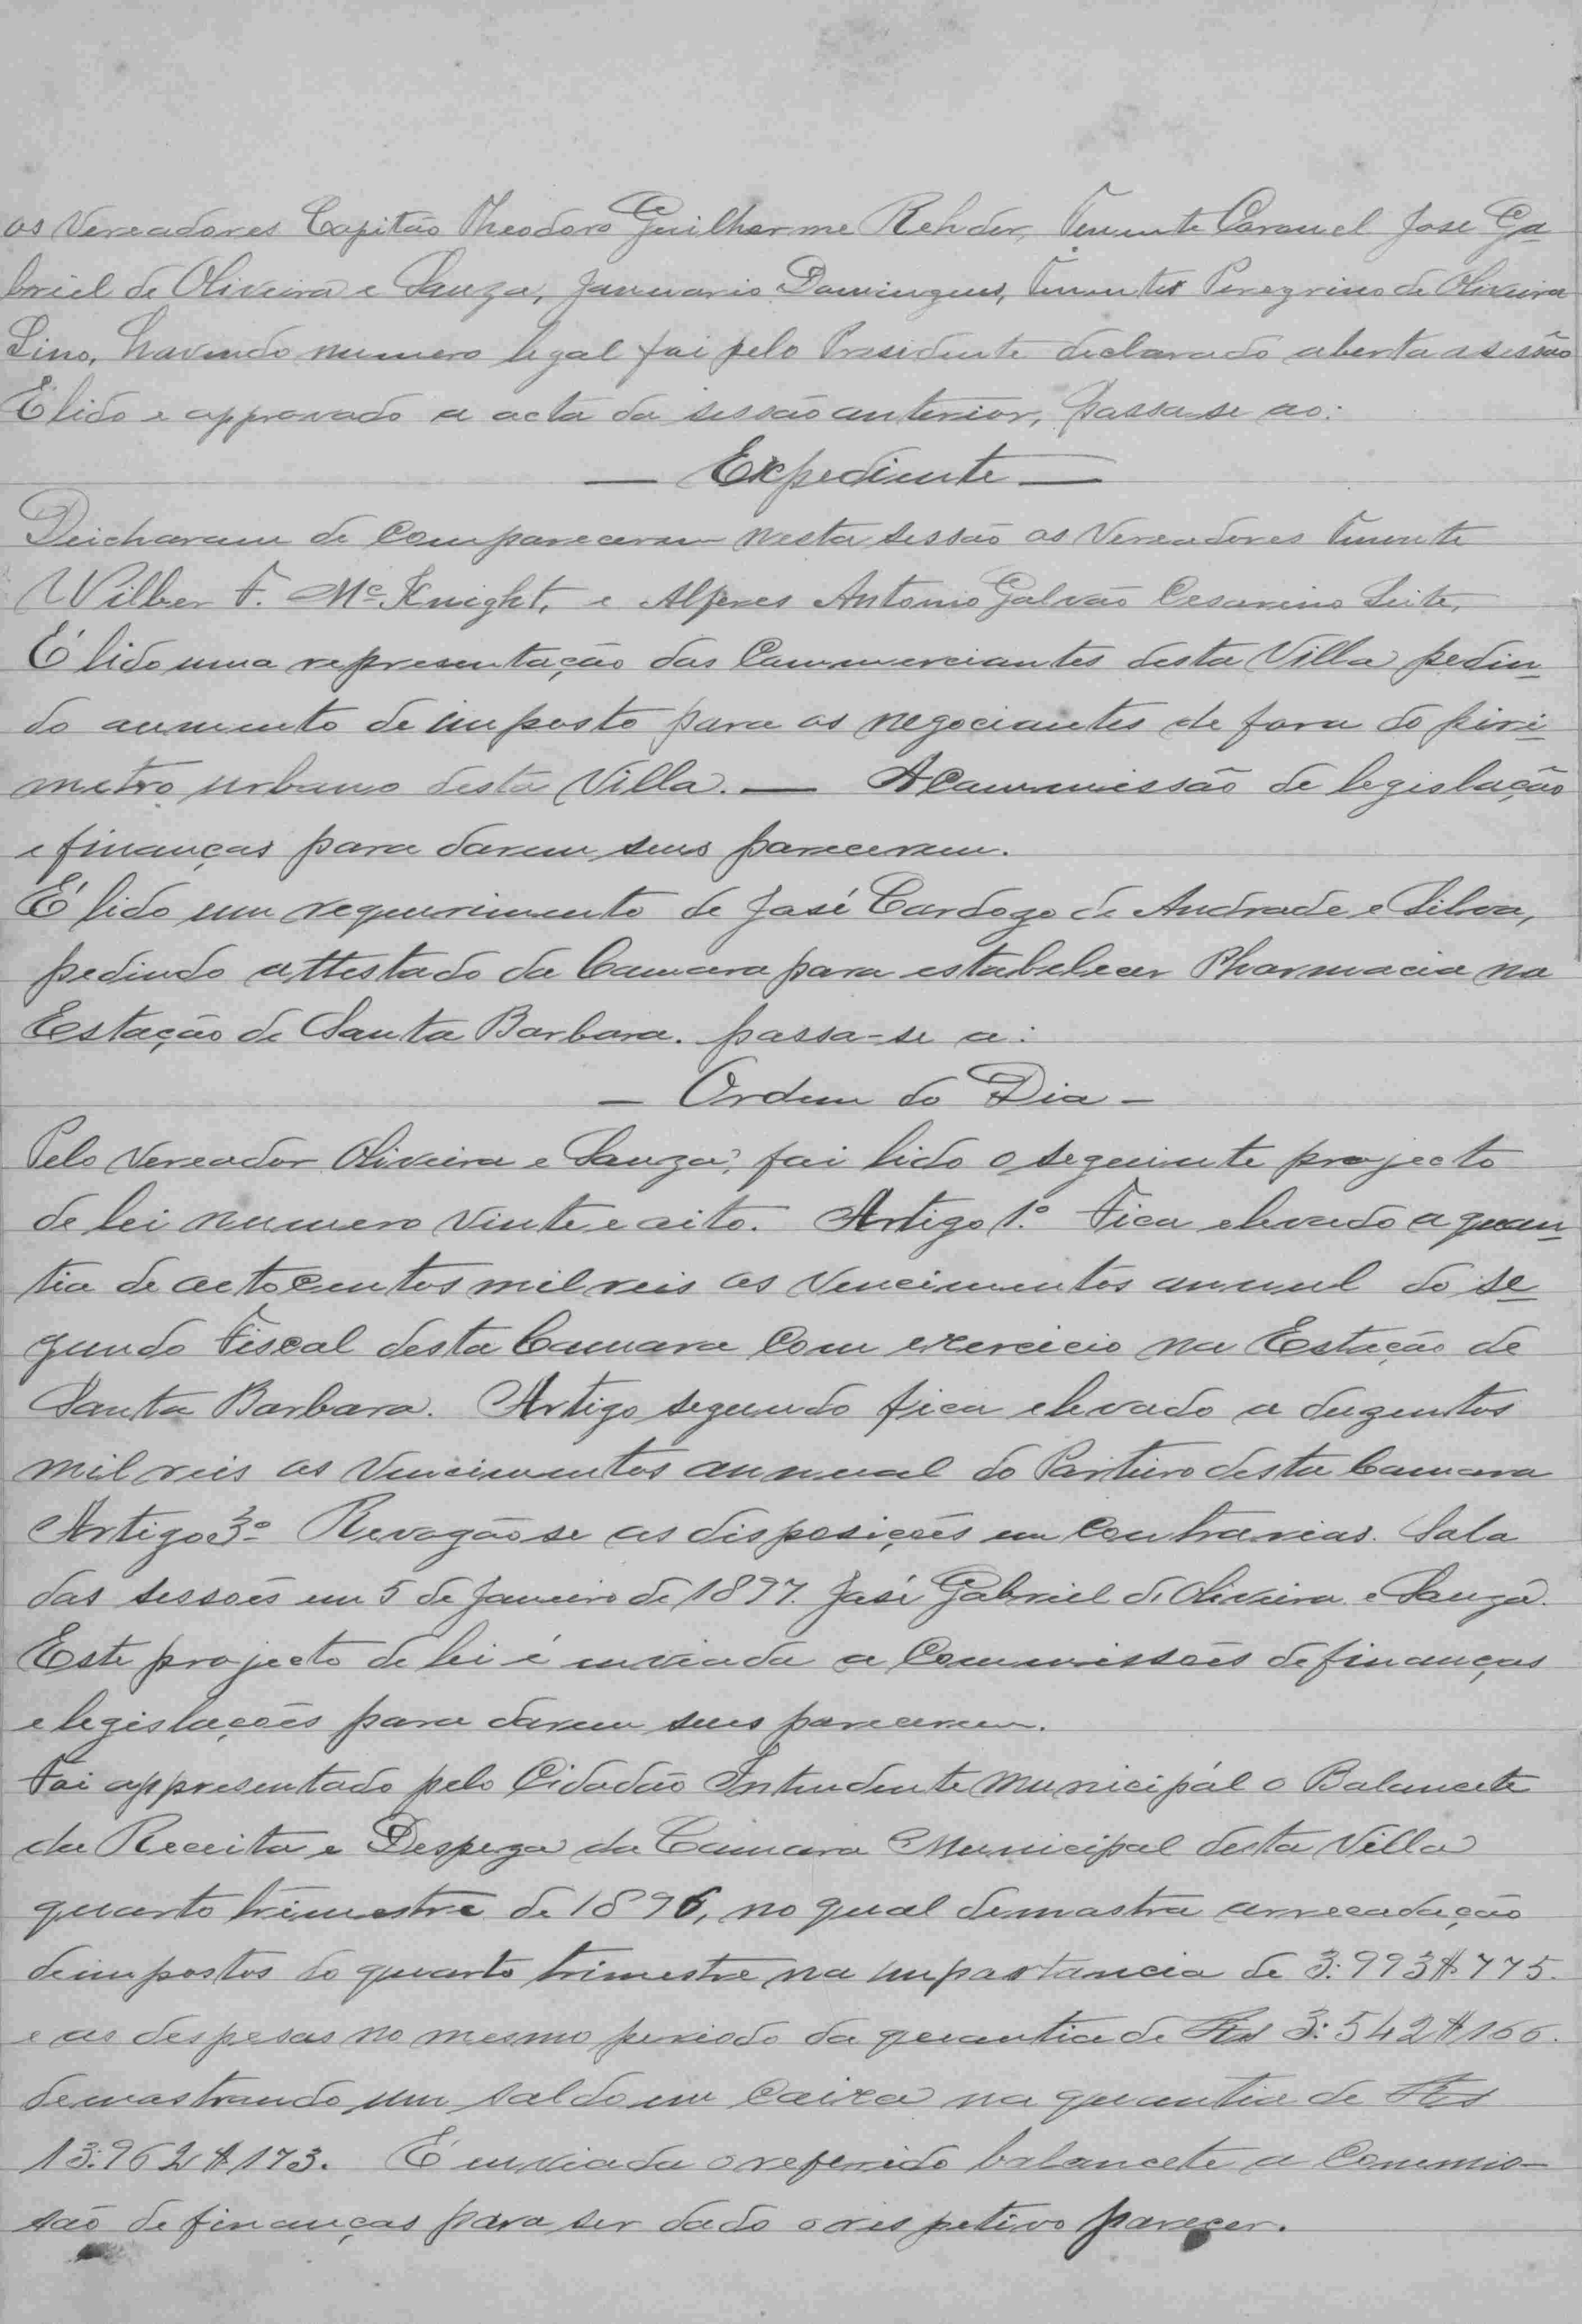 os Vereadores Capitão Theodoro Guilherme Rehder, Tenente Coronel José Ga-
briel de Oliveira e Souza, Januario Domingues, Tenente Peregrino de Oliveira
Lino, havendo numero legal foi pelo Presidente declarado aberta a sessão
É lido e approvado a acta da sessão anterior, passa-se ao:
— Expediente —
Deicharam de comparecerem nesta sessão os Vereadores Tenente
Wilber F. Mc. Knight, e Alferes Antonio Galvão Cesarino Leite,
É lido uma representação dos Commerciantes desta Villa pedin-
do aumento de imposto para os negociantes de fora do piri-
metro urbano desta Villa. — A Commissão de legislação
e finanças para darem seus parecerem.
É lido um requerimento de José Cardozo de Andrade e Silva,
pedindo attestado da Camara para estabelecer Pharmacia na
Estação de Santa Barbara. passa-se a:
— Ordem do Dia —
Pelo Vereador Oliveira e Souza, foi lido o seguinte projecto
de lei numero vinte e oito. Artigo 1.º Fica elevado a quan-
tia de oitocentos mil reis os vencimentos annual do se-
gundo Fiscal desta Camara com exercicio na Estação de
Santa Barbara. Artigo segundo fica elevado a duzentos
mil reis os vencimentos annual do Porteiro desta Camara
Artigo 3º Revogão se as disposições em contrarias. Sala
das sessões em 5 de Janeiro de 1897. José Gabriel de Oliveira e Souza.
Este projecto de lei é enviada a Commissões de finanças
e legislações para darem seus parecerem.
Foi appresentado pelo Cidadão Intendente Municipál o Balancete
da Receita e Despeza da Camara Municipal desta Villa
quarto trimestre de 1896, no qual demostra arrecadação
de impostos do quarto trimestre na importancia de 3:993$775.
e as despesas no mesmo periodo da quantia de Rs 3:542$166.
demostrando um saldo em Caixa na quantia de Rs
13:962$173. É enviada o referido balancete a Commis-
são de finanças para ser dado o respetivo parecer.